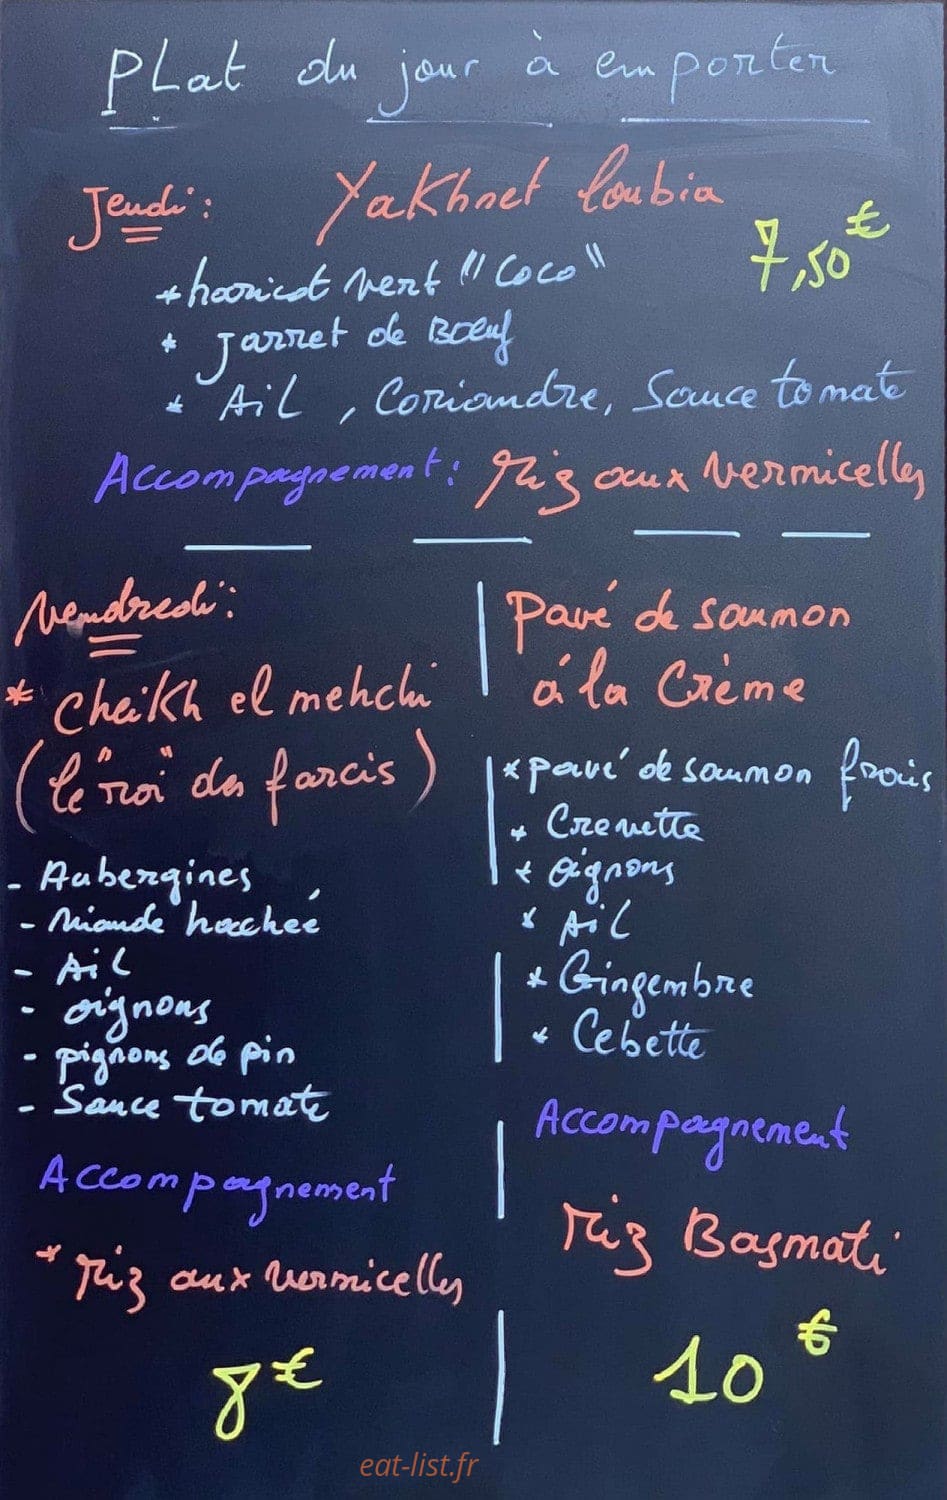 PLat du jour à emporter
Jeudi : Yakhnet loubia
7,50€
* haricot vert "Coco"
* Jarret de Bœuf
* Ail, Coriandre, Sauce tomate
Accompagnement : Riz aux vermicelles
Vendredi :
* Cheikh el mehchi
(le "roi" des farcis)
- Aubergines
- Viande hacheé
- Ail
- oignons
- pignons de pin
- Sauce tomate
Accompagnement
* Riz aux vermicelles
8€
Pavé de saumon
á la Crème
* pavé de saumon frais
* Crevette
* oignons
* Ail
* Gingembre
* Cebette
Accompagnement
Riz Basmati
10€
eat-list.fr